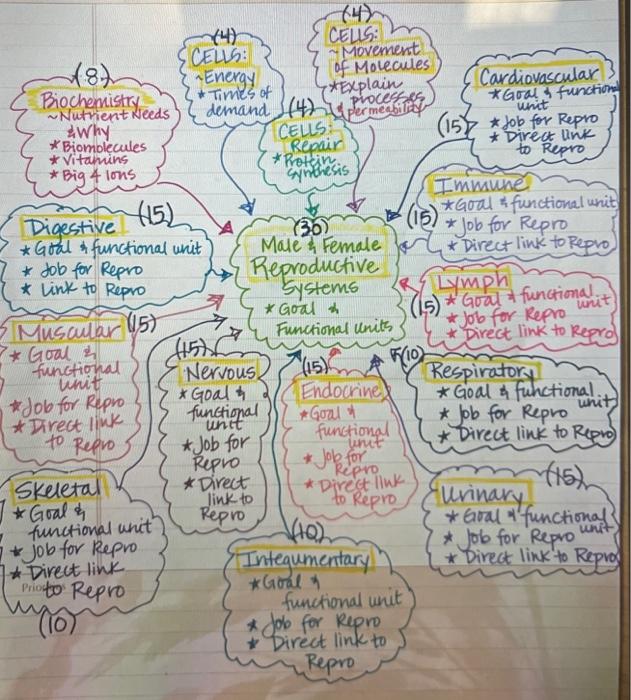 (8)
Biochemistry
~Nutrient Needs
& Why
* Biomolecules
* Vitamins
* Big 4 Ions
(4)
CELLS:
~Energy
* Times of
demand
(4)
CELLS:
Repair
* Protein
synthesis
(4)
CELLS:
~Movement
of Molecules
* Explain
processes
& permeability
Cardiovascular
* Goal & functional
unit
* Job for Repro
* Direct link
to Repro
(15)
Immune
* Goal & functional unit
* Job for Repro
* Direct link to Repro
(15)
Digestive
(15)
* Goal & functional unit
* Job for Repro
* Link to Repro
(30)
Male & Female
Reproductive
Systems
* Goal &
Functional Units
Lymph
* Goal & functional
unit
* Job for Repro
* Direct link to Repro
(15)
Muscular
(15)
* Goal &
functional
unit
* Job for Repro
* Direct link
to Repro
(15)
Nervous
* Goal &
functional
unit
* Job for
Repro
* Direct
link to
Repro
(15)
Endocrine
* Goal &
functional
unit
* Job for
Repro
* Direct link
to Repro
(10)
Respiratory
* Goal & functional
unit
* Job for Repro
* Direct link to Repro
Skeletal
* Goal &
functional unit
* Job for Repro
* Direct link
to Repro
(10)
(10)
Integumentary
* Goal &
functional unit
* Job for Repro
* Direct link to
Repro
(15)
Urinary
* Goal & functional
unit
* Job for Repro
* Direct link to Repro